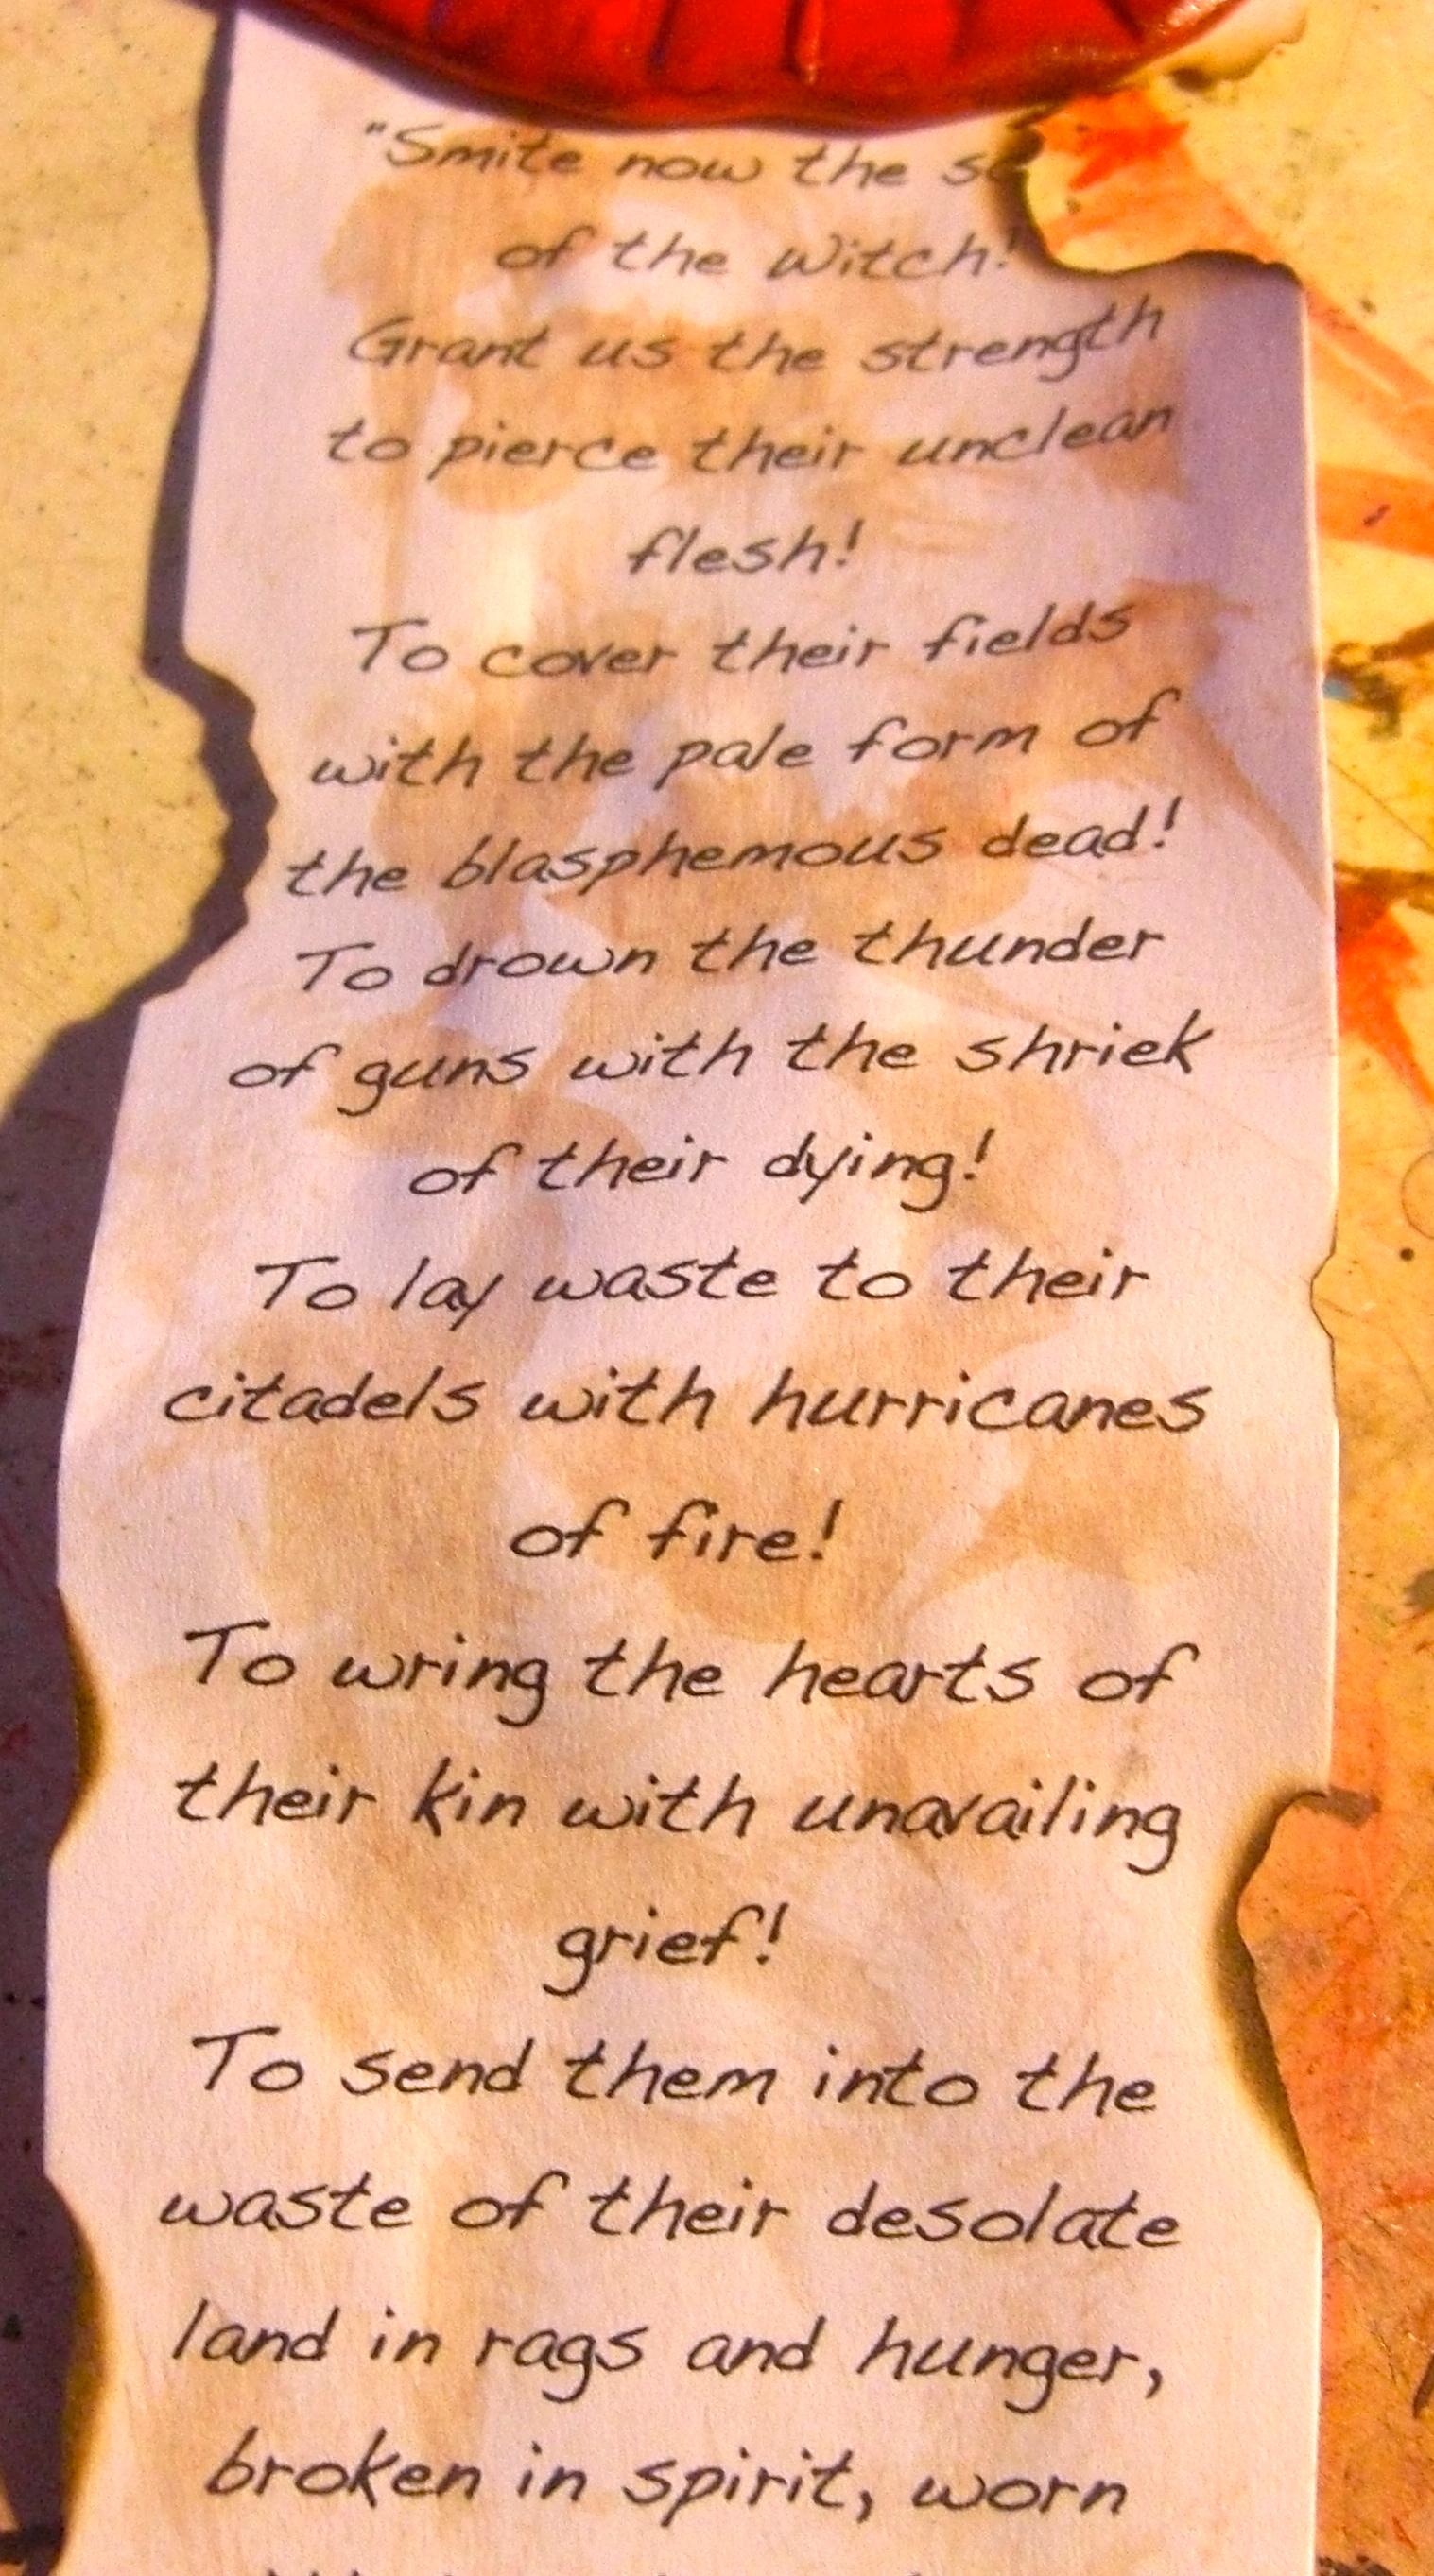 "Smite now the
of the Witch!
Grant us the strength
to pierce their unclean
flesh!
To cover their fields
with the pale form of
the blasphemous dead!
To drown the thunder
of guns with the shriek
of their dying!
To lay waste to their
citadels with hurricanes
of fire!
To wring the hearts of
their kin with unavailing
grief!
To send them into the
waste of their desolate
land in rags and hunger,
broken in spirit, worn